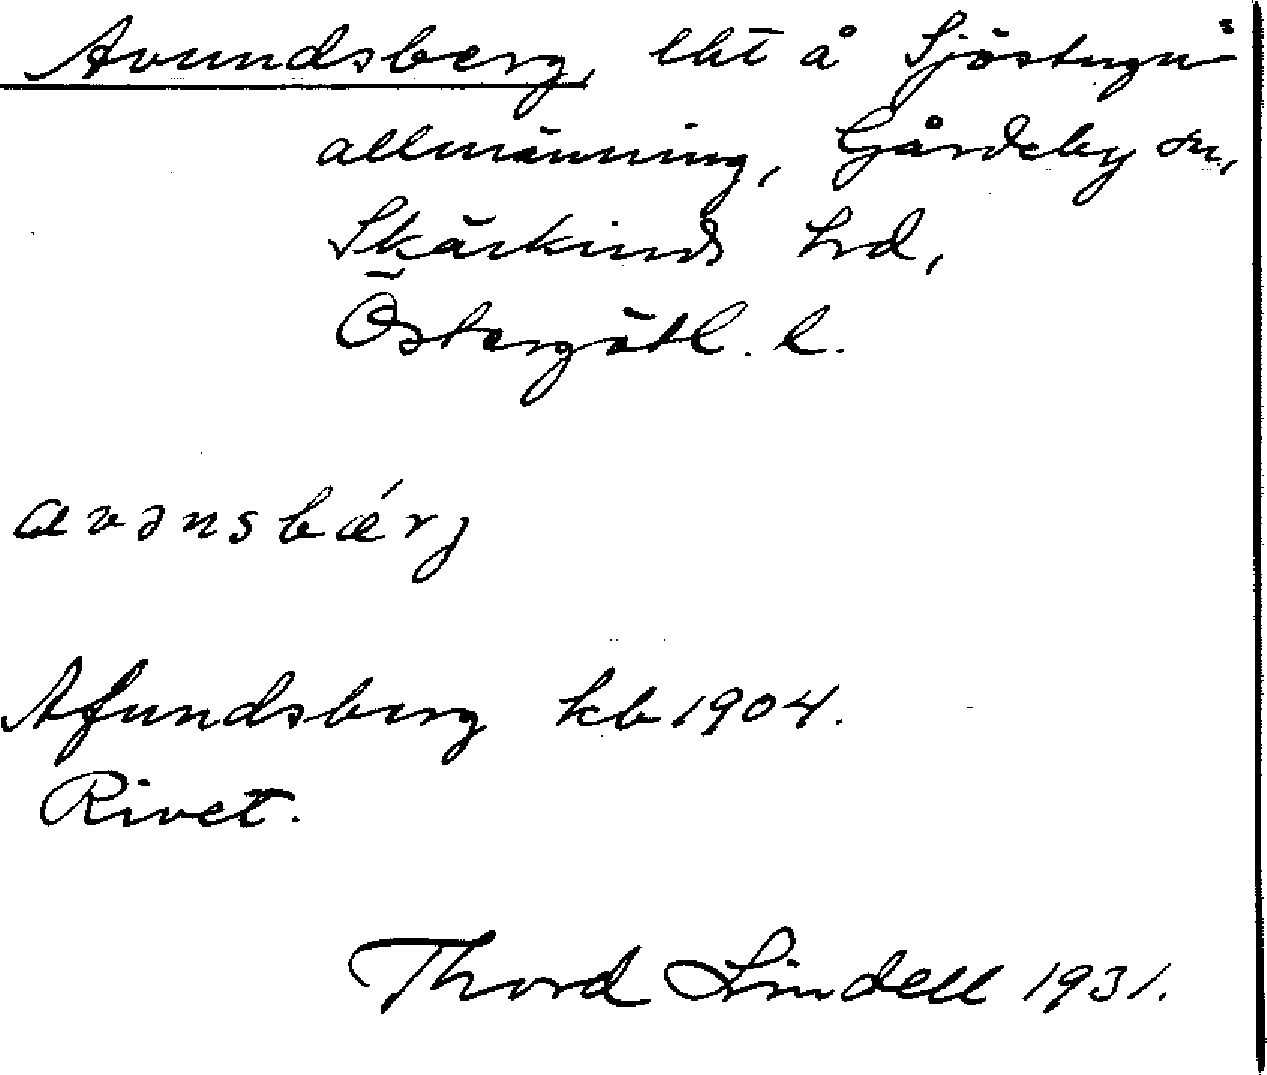 Avundsberg, lht å Sjöstugu=
allmänning, Gårdeby sn,
Skärkinds hd,
Östergötl. l.
avənsbǽrj
Afundsberg kb 1904.
Rivet.
Thord Lindell 1931.